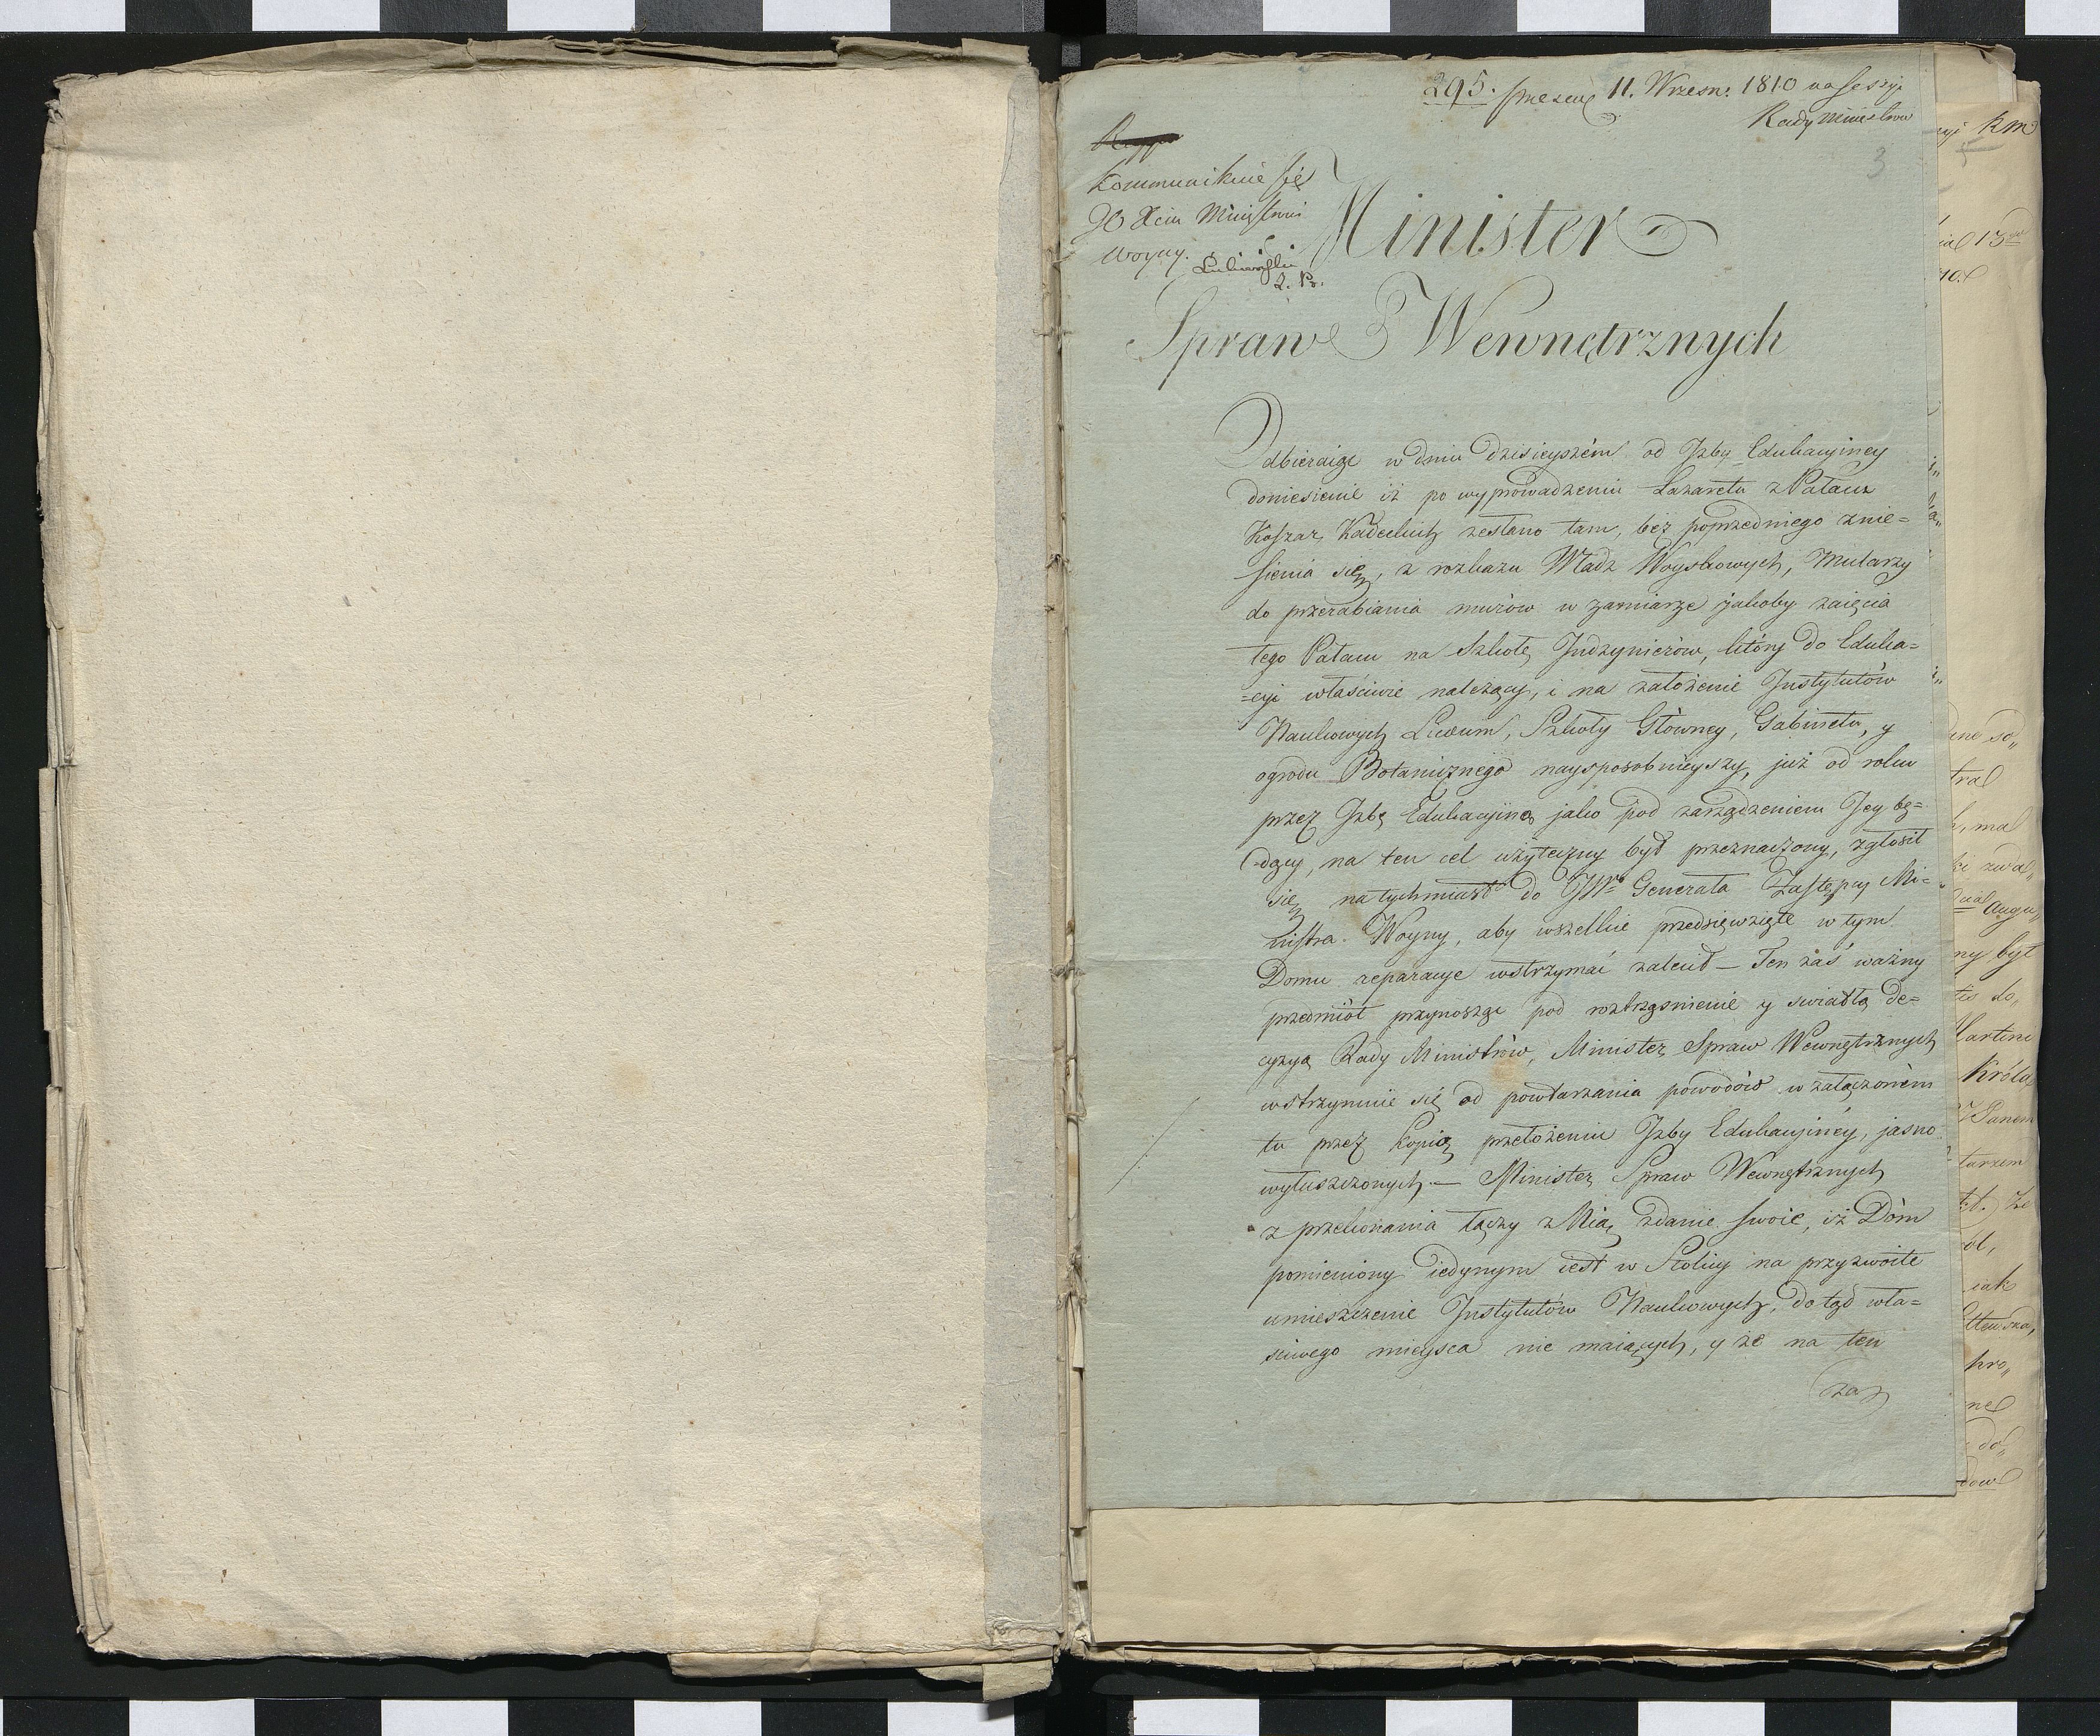 295. praesent 11. Wrzesn: 1810 na Sessyi
Rady Ministrow
3
Kommunikuie się
JO Xciu Ministrowi
Woyny.
Minister
Spraw Wewnętrznych
Odbieraiąc w dniu dzisieyszém od Izby Edukacyiney
doniesienie iż po wyprowadzeniu Lazaretu z Pałacu
Koszar Kadeckich zesłano tam, bez poprzedniego znie=
sienia się, z rozkazu Władz Woyskowych, Mularzy
do przerabiania murów w zamiarze jakoby zaięcia
tego Pałacu na Szkołę Indzynierów, który do Eduka=
=cyi właściwie należący, i na założenie Instytutów
Naukowych Liceum, Szkoły Głowney, Gabinetu, y
ogrodu Botanicznego naysposobnieyszy, już od roku
przez Izbę Edukacyiną jako pod zarządzeniem Jey bę=
=dący, na ten cel użyteczny był przeznaczony, zgłosił
się natychmiast do JW° Generała Zastępcy Mi=
nistra Woyny, aby wszelkie przedsięwzięte w tym
Domu reparacye wstrzymać zalecił — Ten zaś ważny
przedmiot przynosząc pod roztrząśnienie y swiatłą de=
cyzyą Rady Ministrów, Minister Spraw Wewnętrznych
wstrzymuie się od powtarzania powodów w załączoném
tu przez kopią przełożeniu Izby Edukacyiney, jasno
wyłuszczonych. — Minister Spraw Wewnętrznych
z przekonania łączy z Nią zdanie swoie, iż Dóm
pomieniony iedynym iest w Stolicy na przyzwoite
umieszczenie Instytutów Naukowych, dotąd wła=
ściwego mieysca nie maiących, y że na ten
zaś